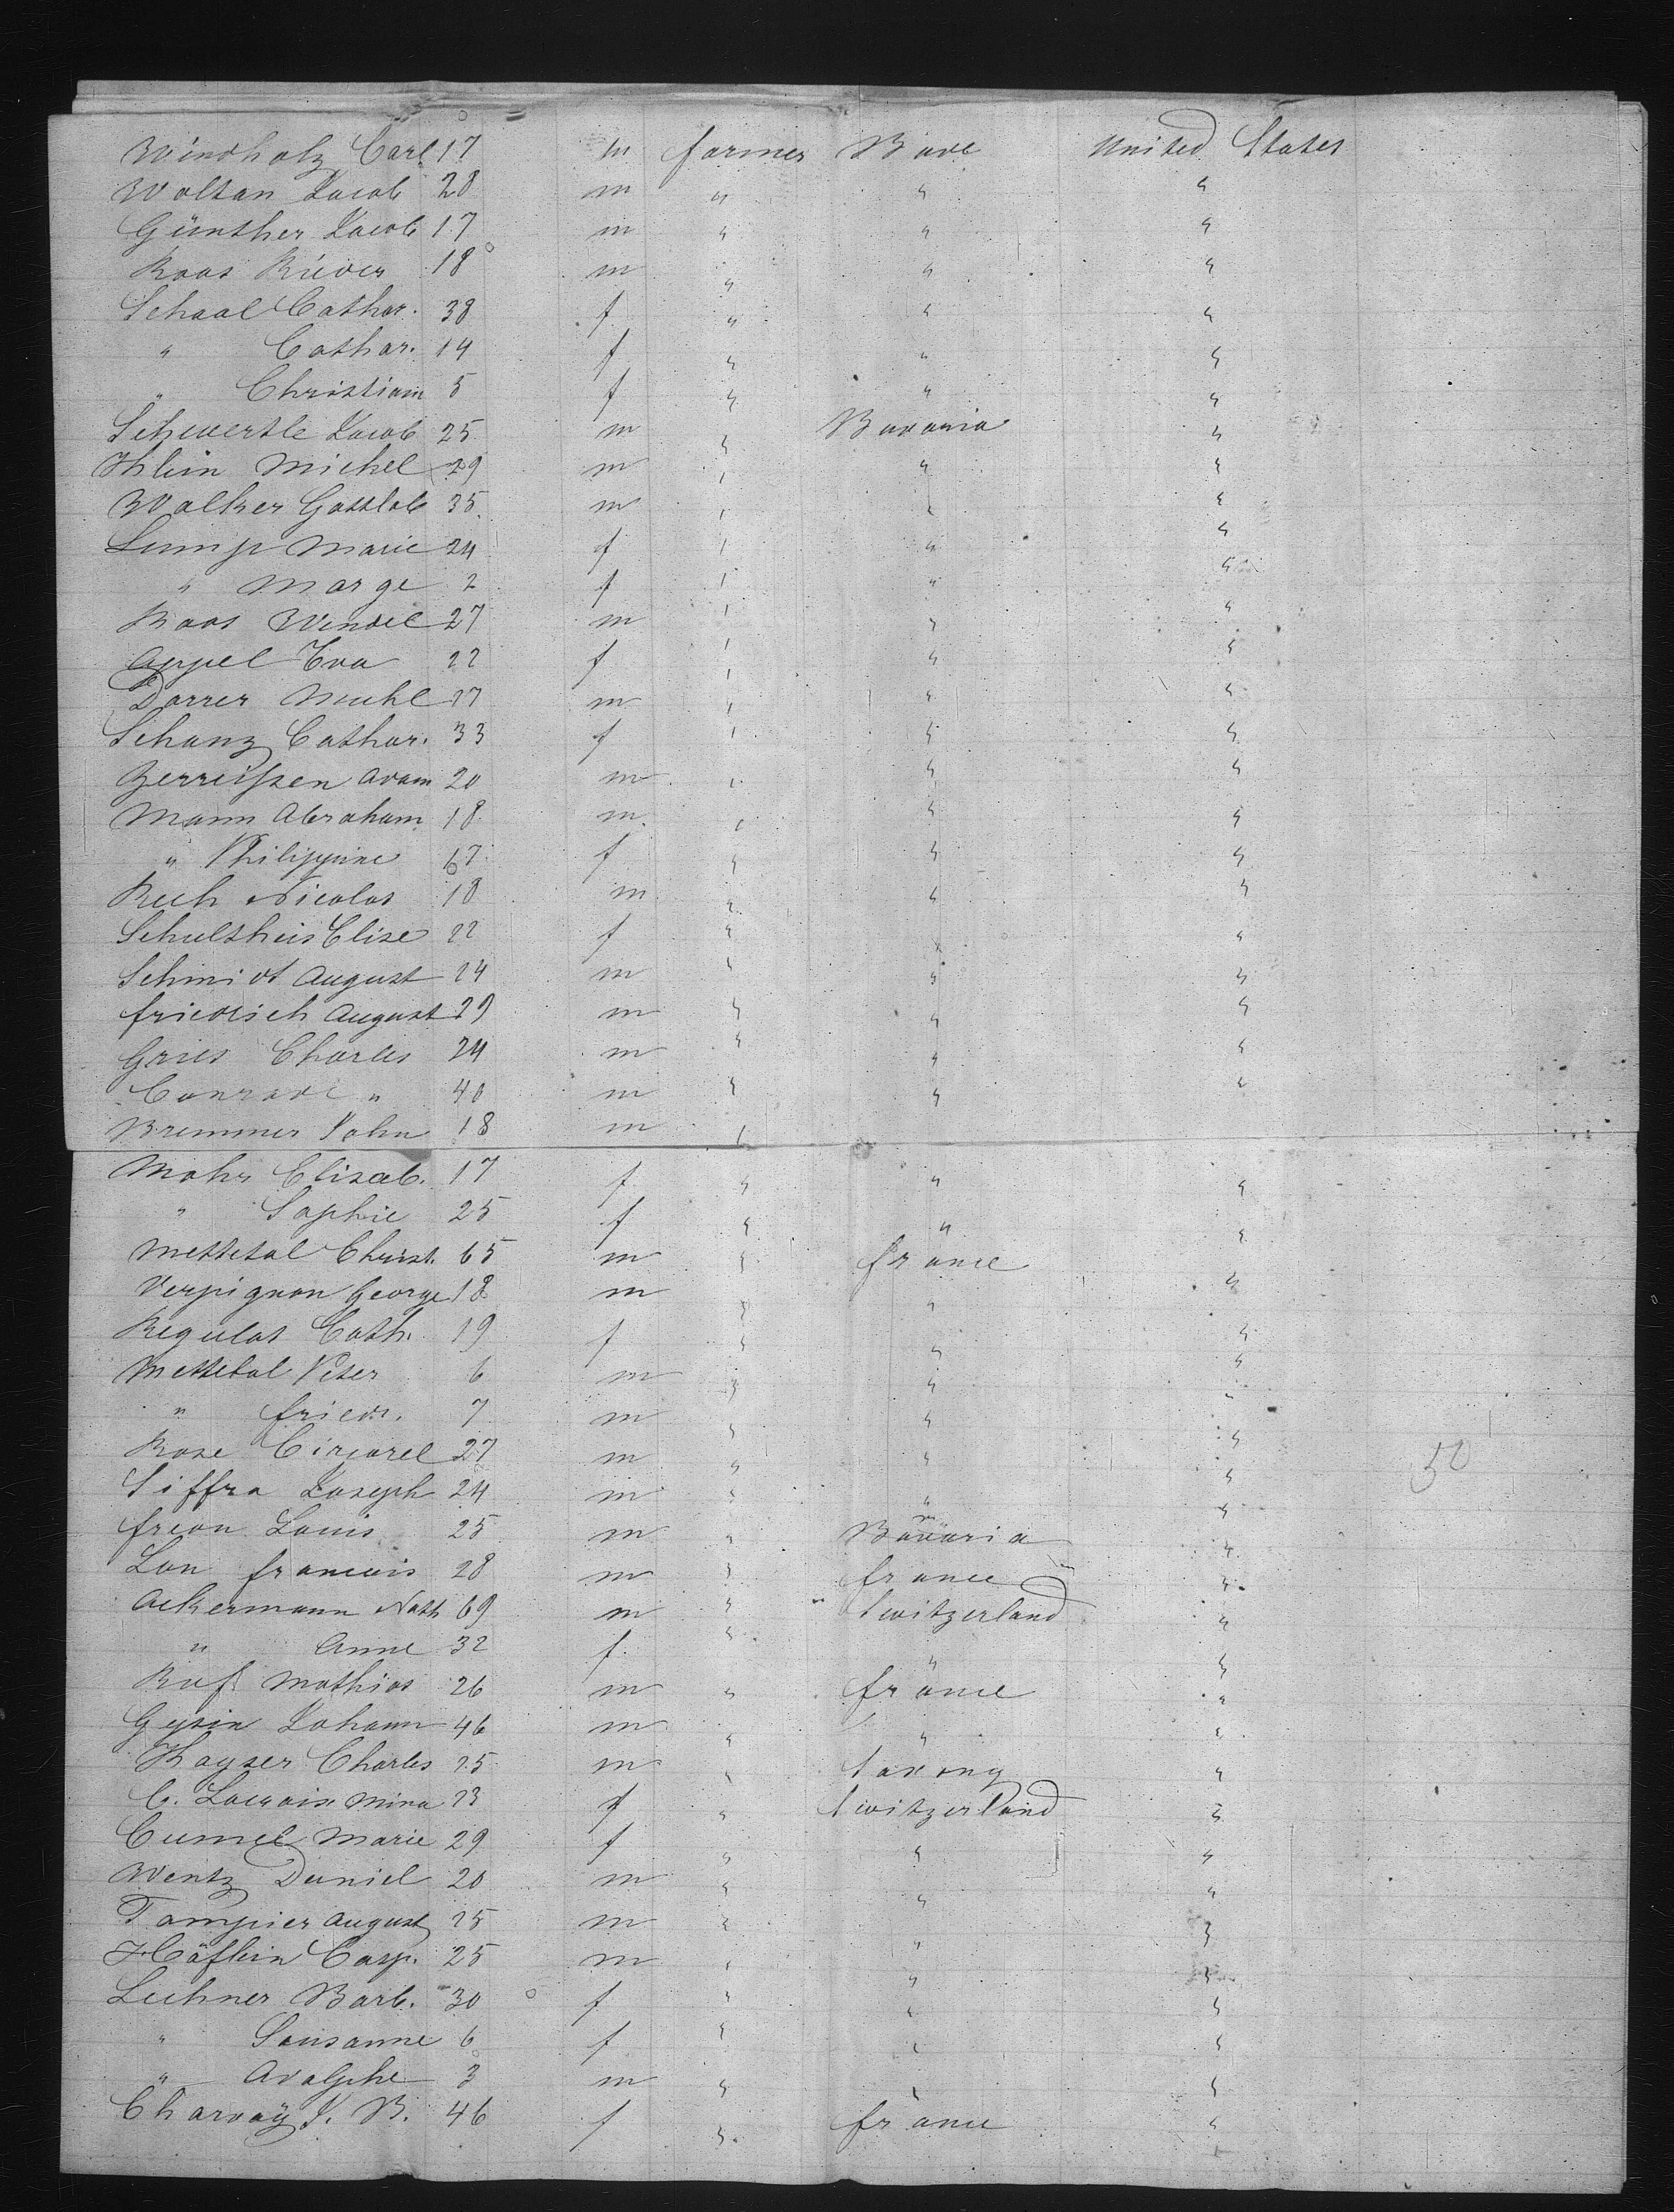 Windholz Carl 17 m farmer Bade United States
Woltan Jacob 28 m " " "
Günther Jacob 17 m " " "
Roos 18 m " " "
Schaal Cathar. 38 f " " "
" Cathar. 14 f " " "
" Christian 5 f " " "
Schwertle Jacob 25 m " Bavaria "
Klein Michel 29 m " " "
Walker Gottlob 35 m " " "
Lump Marie 24 f " " "
" Marge 2 f " " "
Roos Wendel 27 m " " "
Appel Eva 22 f " " "
Darrer 27 m " " "
Schanz Cathar. 33 f " " "
Zerreissen Adam 20 m " " "
Mann Abraham 18 m " " "
" Philippine 67 f " " "
Rech Nicolas 18 m " " "
Schultheis Elise 22 f " " "
Schmidt August 24 m " " "
friedrich August 29 m " " "
Gries Charles 24 m " " "
Conrade " 40 m " " "
Bremmer John 18 m "
Mohr Elisab. 17 f " " "
" Sophie 25 f " " "
Mettetal Christ. 65 m " france "
Verpignon George 18 m " " "
Regulas Cath. 19 f " " "
Mettetal Peter 6 m " " "
" friedr. 7 m " " "
Rose 27 m " " "
Siffra Joseph 24 m " " " 50
freon Louis 25 m " Bavaria "
Lon francois 28 m " france "
Ackermann Nath 69 m " Switzerland "
" Anne 32 f " " "
Ruf Mathias 26 m " france "
Gysin Johann 46 m " " "
Kayser Charles 25 m " Saxony "
C. Lacroix Mina 23 f " Switzerland "
Cumel Marie 29 f " " "
Wentz Daniel 20 m " " "
Tampier August 25 m " " "
Häflein Casp. 25 m " " "
Lechner Barb. 30 f " " "
" Sousanne 6 f " " "
" Adolphe 3 m " " "
Charvaÿ J. B. 46 f " france "